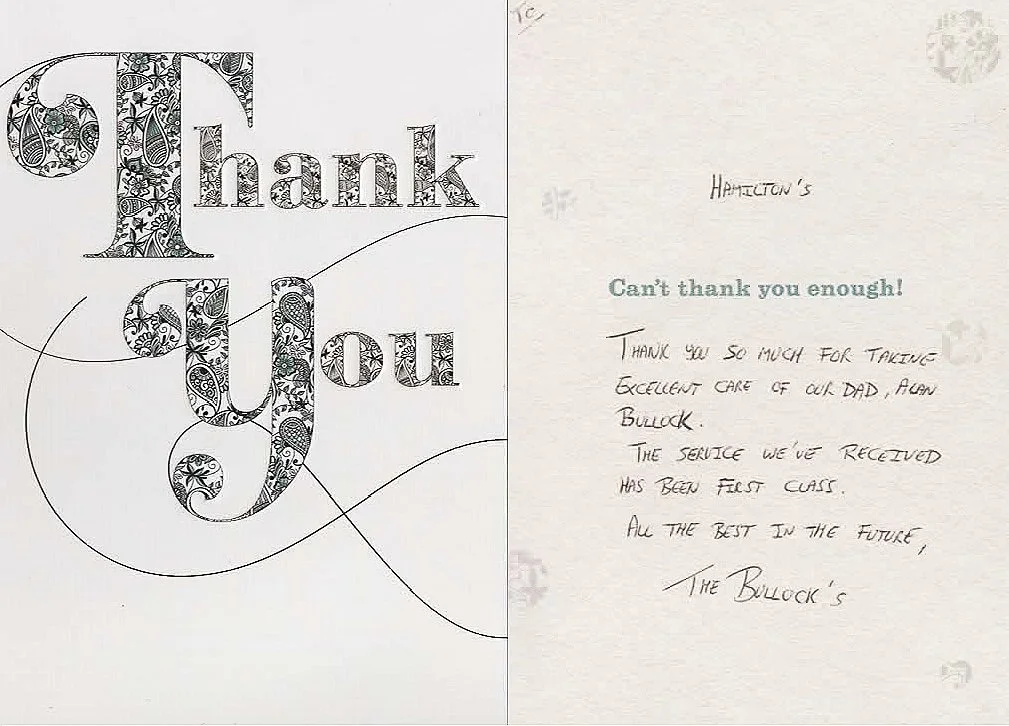 Thank
You
To,
HAMILTON'S
Can't thank you enough!
THANK YOU SO MUCH FOR TAKING
EXCELLENT CARE OF OUR DAD, ALAN
BULLOCK.
THE SERVICE WE'VE RECEIVED
HAS BEEN FIRST CLASS.
ALL THE BEST IN THE FUTURE,
THE BULLOCK'S